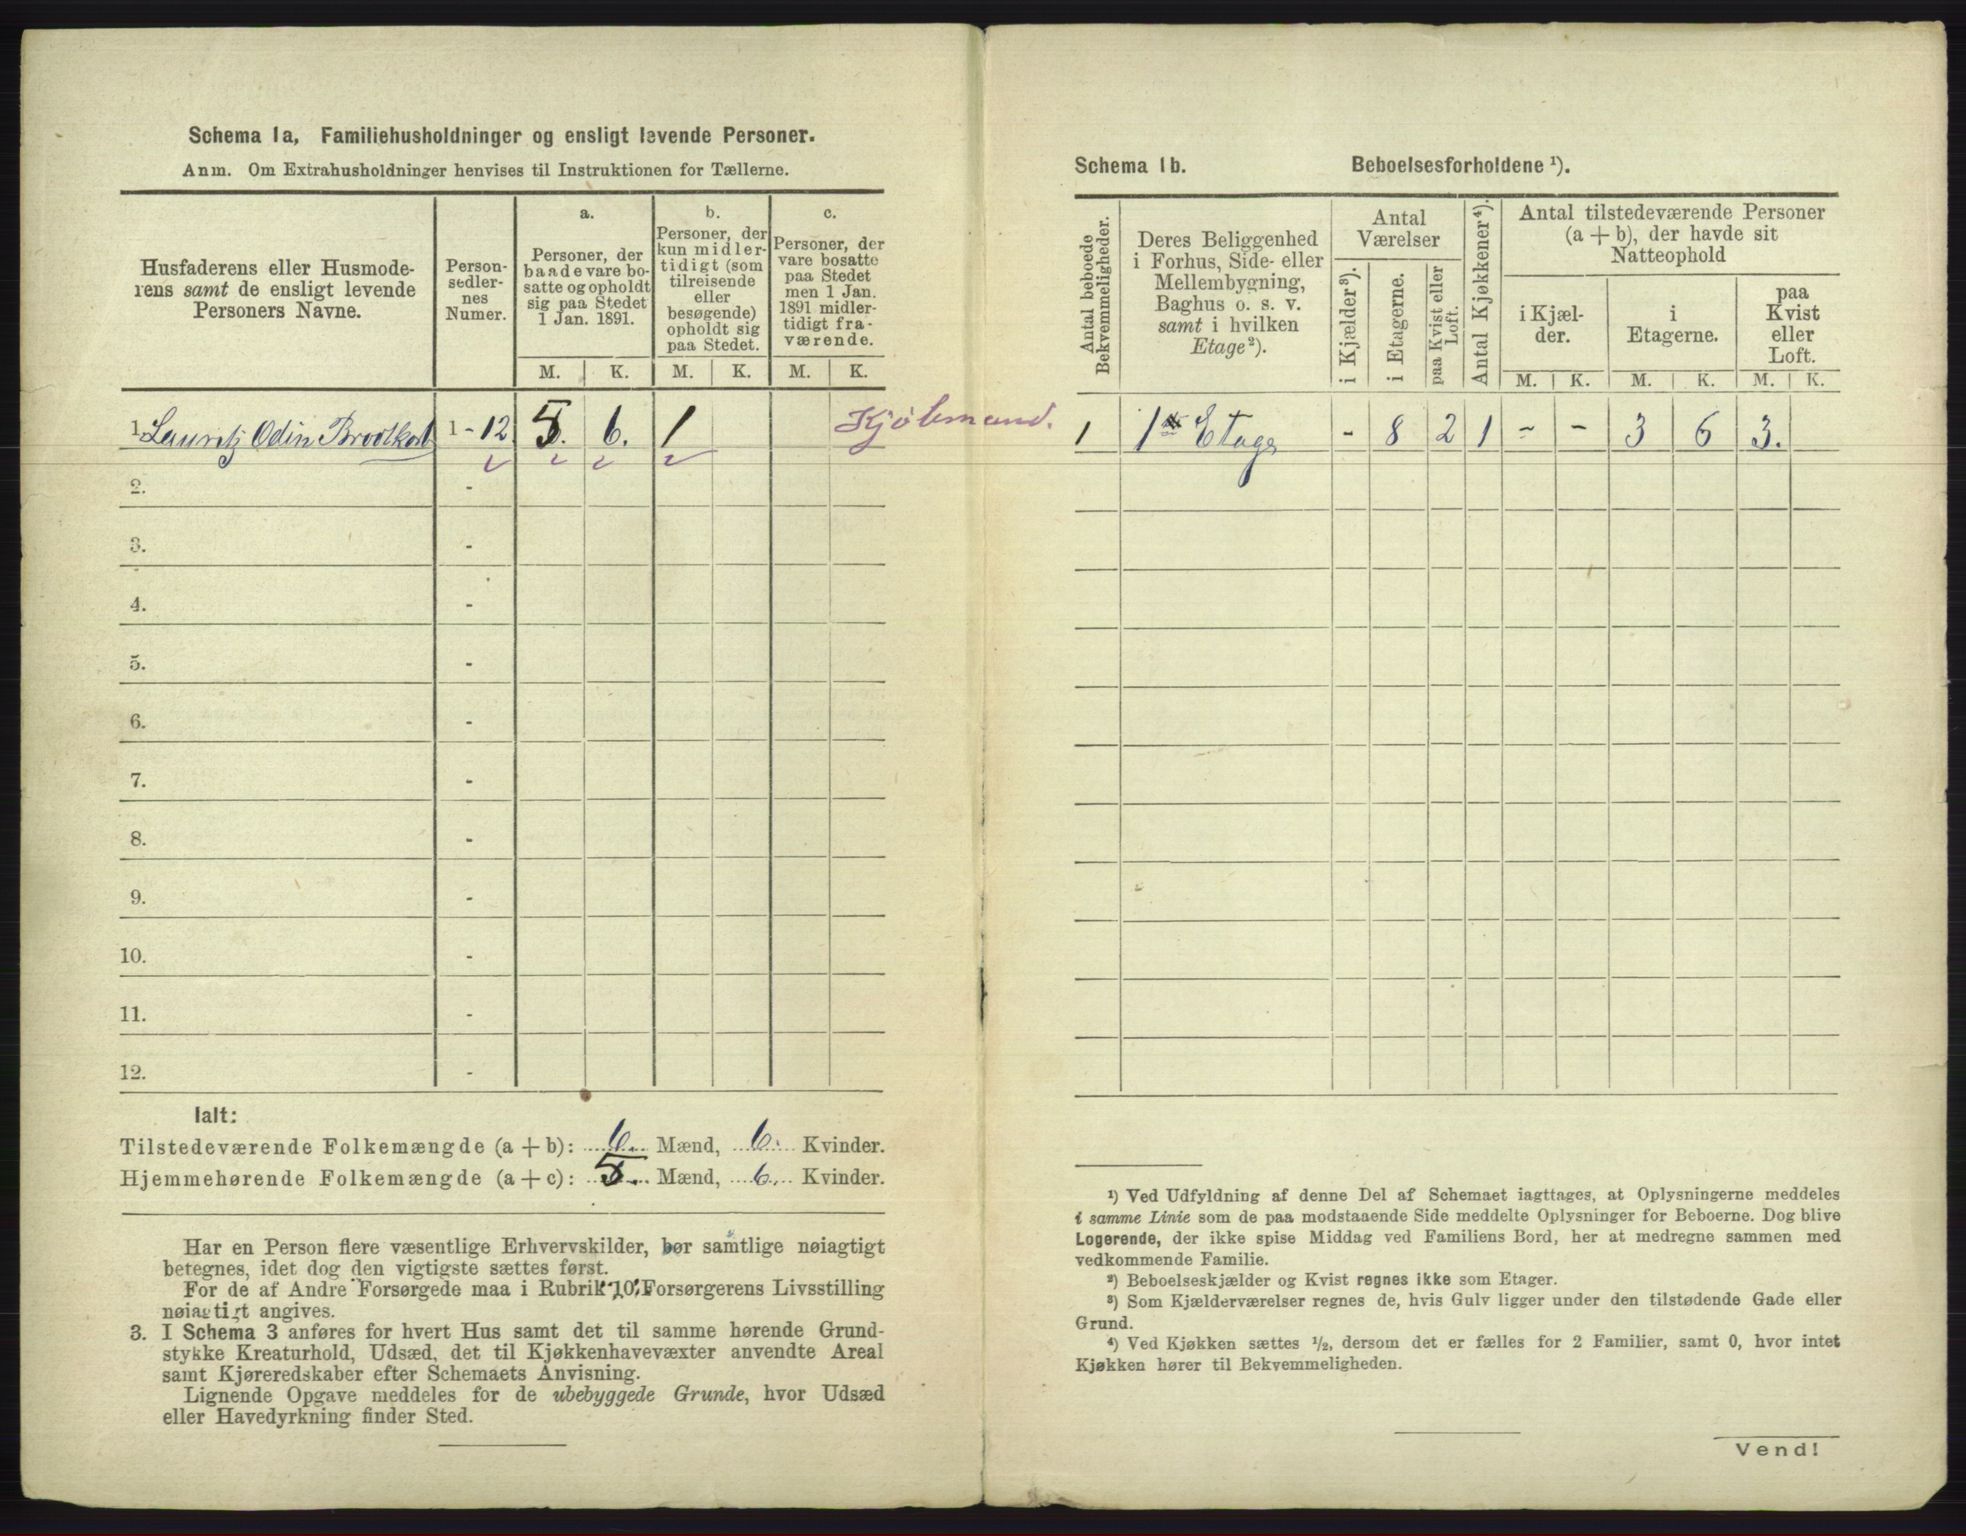 Schema 1a, Familiehusholdninger og ensligt levende Personer.
Anm. Om Extrahusholdninger henvises til Instruktionen for Tællerne.
Husfaderens eller Husmode-
rens samt de ensligt levende
Personers Navne.
Person-
sedler-
nes
Numer.
a.
Personer, der
baade vare bo-
satte og opholdt
sig paa Stedet
1 Jan. 1891.
b.
Personer, der
kun midler-
tidigt (som
tilreisende
eller
besøgende)
opholdt sig
paa Stedet.
c.
Personer, der
vare bosatte
paa Stedet
men 1 Jan.
1891 midler-
tidigt fra-
værende.
M. K. M. K. M. K.
1. Lauritz Odin Brodtkorb 1 - 12 5. 6. 1 Kjøbmand.
2. -
3. -
4. -
5. -
6. -
7. -
8. -
9. -
10. -
11. -
12. -
Ialt:
Tilstedeværende Folkemængde (a + b): 6. Mænd, 6. Kvinder.
Hjemmehørende Folkemængde (a + c): 5. Mænd, 6. Kvinder.
Har en Person flere væsentlige Erhvervskilder, bør samtlige nøiagtigt
betegnes, idet dog den vigtigste sættes først.
For de af Andre Forsørgede maa i Rubrik 10. Forsørgerens Livsstilling
nøiagtigt angives.
3. I Schema 3 anføres for hvert Hus samt det til samme hørende Grund-
stykke Kreaturhold, Udsæd, det til Kjøkkenhavevæxter anvendte Areal
samt Kjøreredskaber efter Schemaets Anvisning.
Lignende Opgave meddeles for de ubebyggede Grunde, hvor Udsæd
eller Havedyrkning finder Sted.
Schema 1b. Beboelsesforholdene ¹).
Antal beboede
Bekvemmeligheder.
Deres Beliggenhed
i Forhus, Side- eller
Mellembygning,
Baghus o. s. v.
samt i hvilken
Etage²).
Antal
Værelser
i Kjælder³).
i Etagerne.
paa Kvist eller
Loft.
Antal Kjøkkener⁴).
Antal tilstedeværende Personer
(a + b), der havde sit
Natteophold
i Kjæl-
der.
i
Etagerne.
paa
Kvist
eller
Loft.
M. K. M. K. M. K.
1 1ste Etage - 8 2 1 - - 3 6 3.
¹) Ved Udfyldning af denne Del af Schemaet iagttages, at Oplysningerne meddeles
i samme Linie som de paa modstaaende Side meddelte Oplysninger for Beboerne. Dog blive
Logerende, der ikke spise Middag ved Familiens Bord, her at medregne sammen med
vedkommende Familie.
²) Beboelseskjælder og Kvist regnes ikke som Etager.
³) Som Kjælderværelser regnes de, hvis Gulv ligger under den tilstødende Gade eller
Grund.
⁴) Ved Kjøkken sættes ½, dersom det er fælles for 2 Familier, samt 0, hvor intet
Kjøkken hører til Bekvemmeligheden.
Vend!